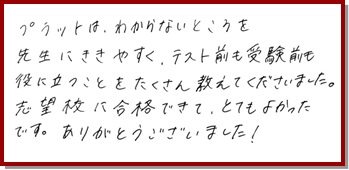 プラットは、わからないところを
先生にききやすく、テスト前も受験前も
役に立つことをたくさん教えてくださいました。
志望校に合格できて、とてもよかった
です。ありがとうございました!